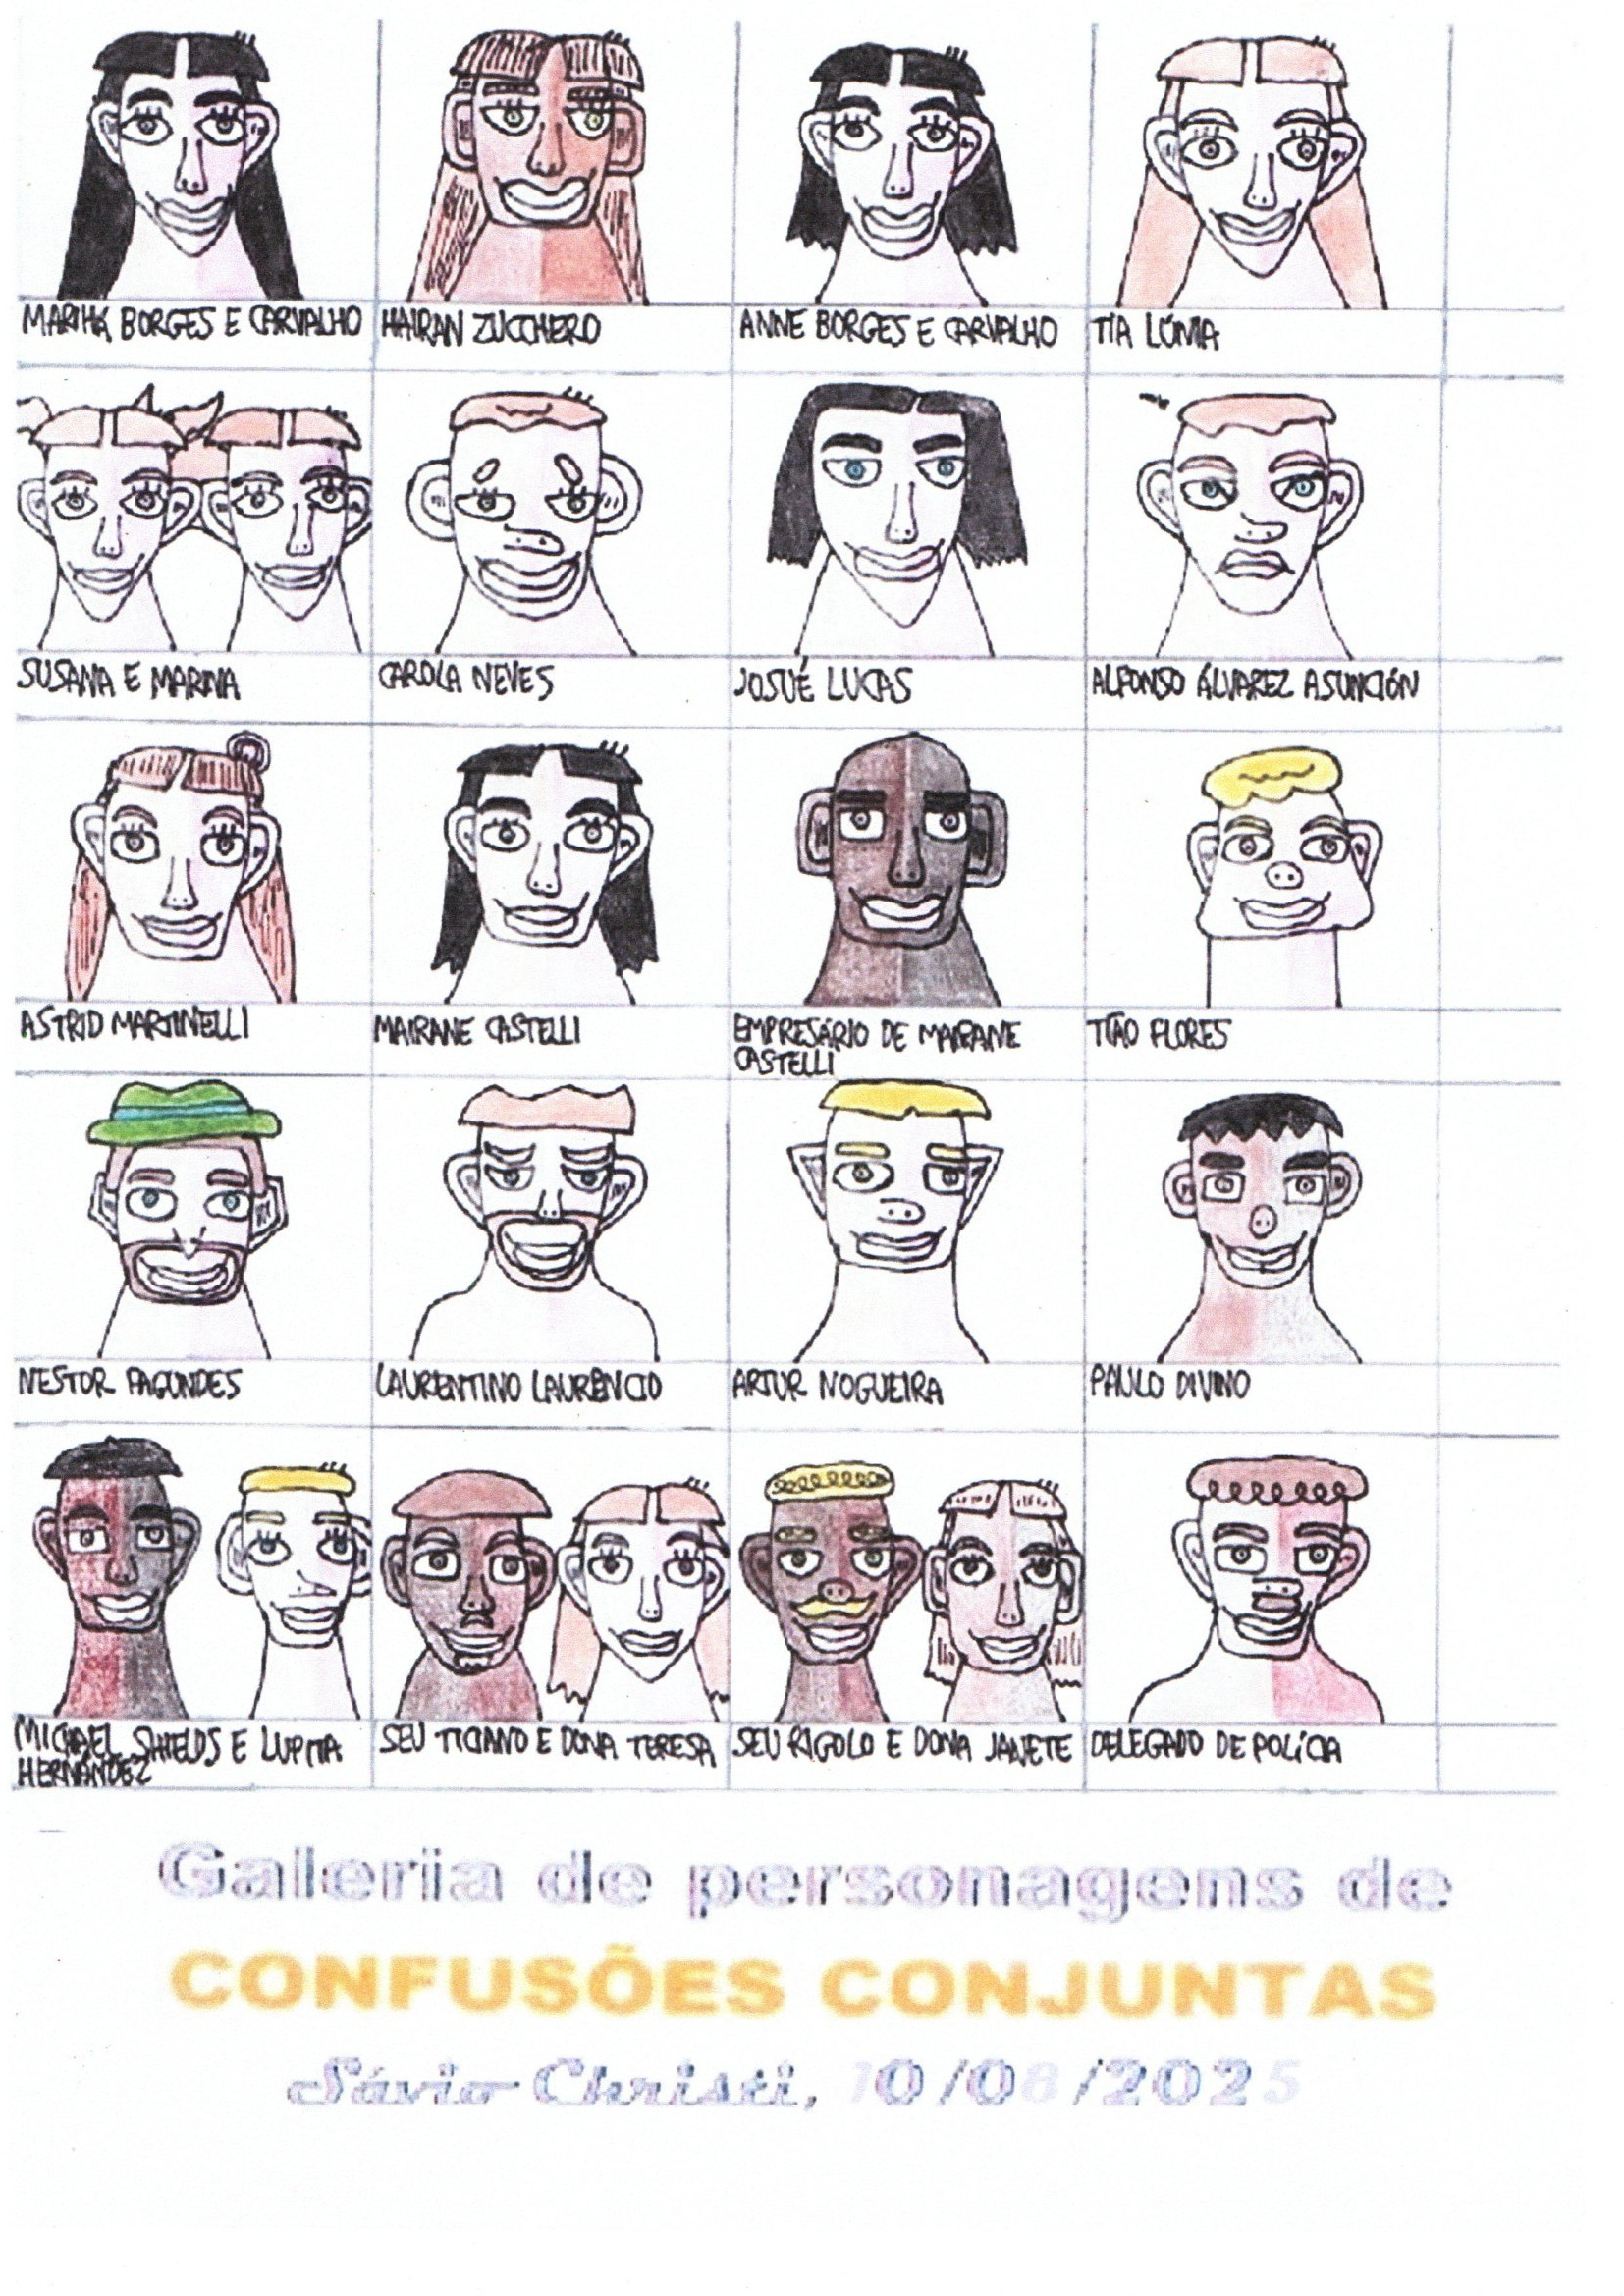 MARIHÁ BORGES E CARVALHO
HAIRAN ZUCCHERO
ANNE BORGES E CARVALHO
TIA LÚMIA
SUSANA E MARINA
CAROLA NEVES
JOSUÉ LUCAS
ALFONSO ÁLVAREZ ASUNCIÓN
ASTRID MARTINELLI
MAIRANE CASTELLI
EMPRESÁRIO DE MAIRANE
CASTELLI
TIÃO FLORES
NESTOR FAGUNDES
LAURENTINO LAURÊNCIO
ARTUR NOGUEIRA
PAULO DIVINO
MICHAEL SHIELDS E LUPITA
HERNÁNDEZ
SEU TICIANO E DONA TERESA
SEU RIGOLO E DONA JANETE
DELEGADO DE POLÍCIA
Galeria de personagens de
CONFUSÕES CONJUNTAS
Sávio Christi, 10/08/2025